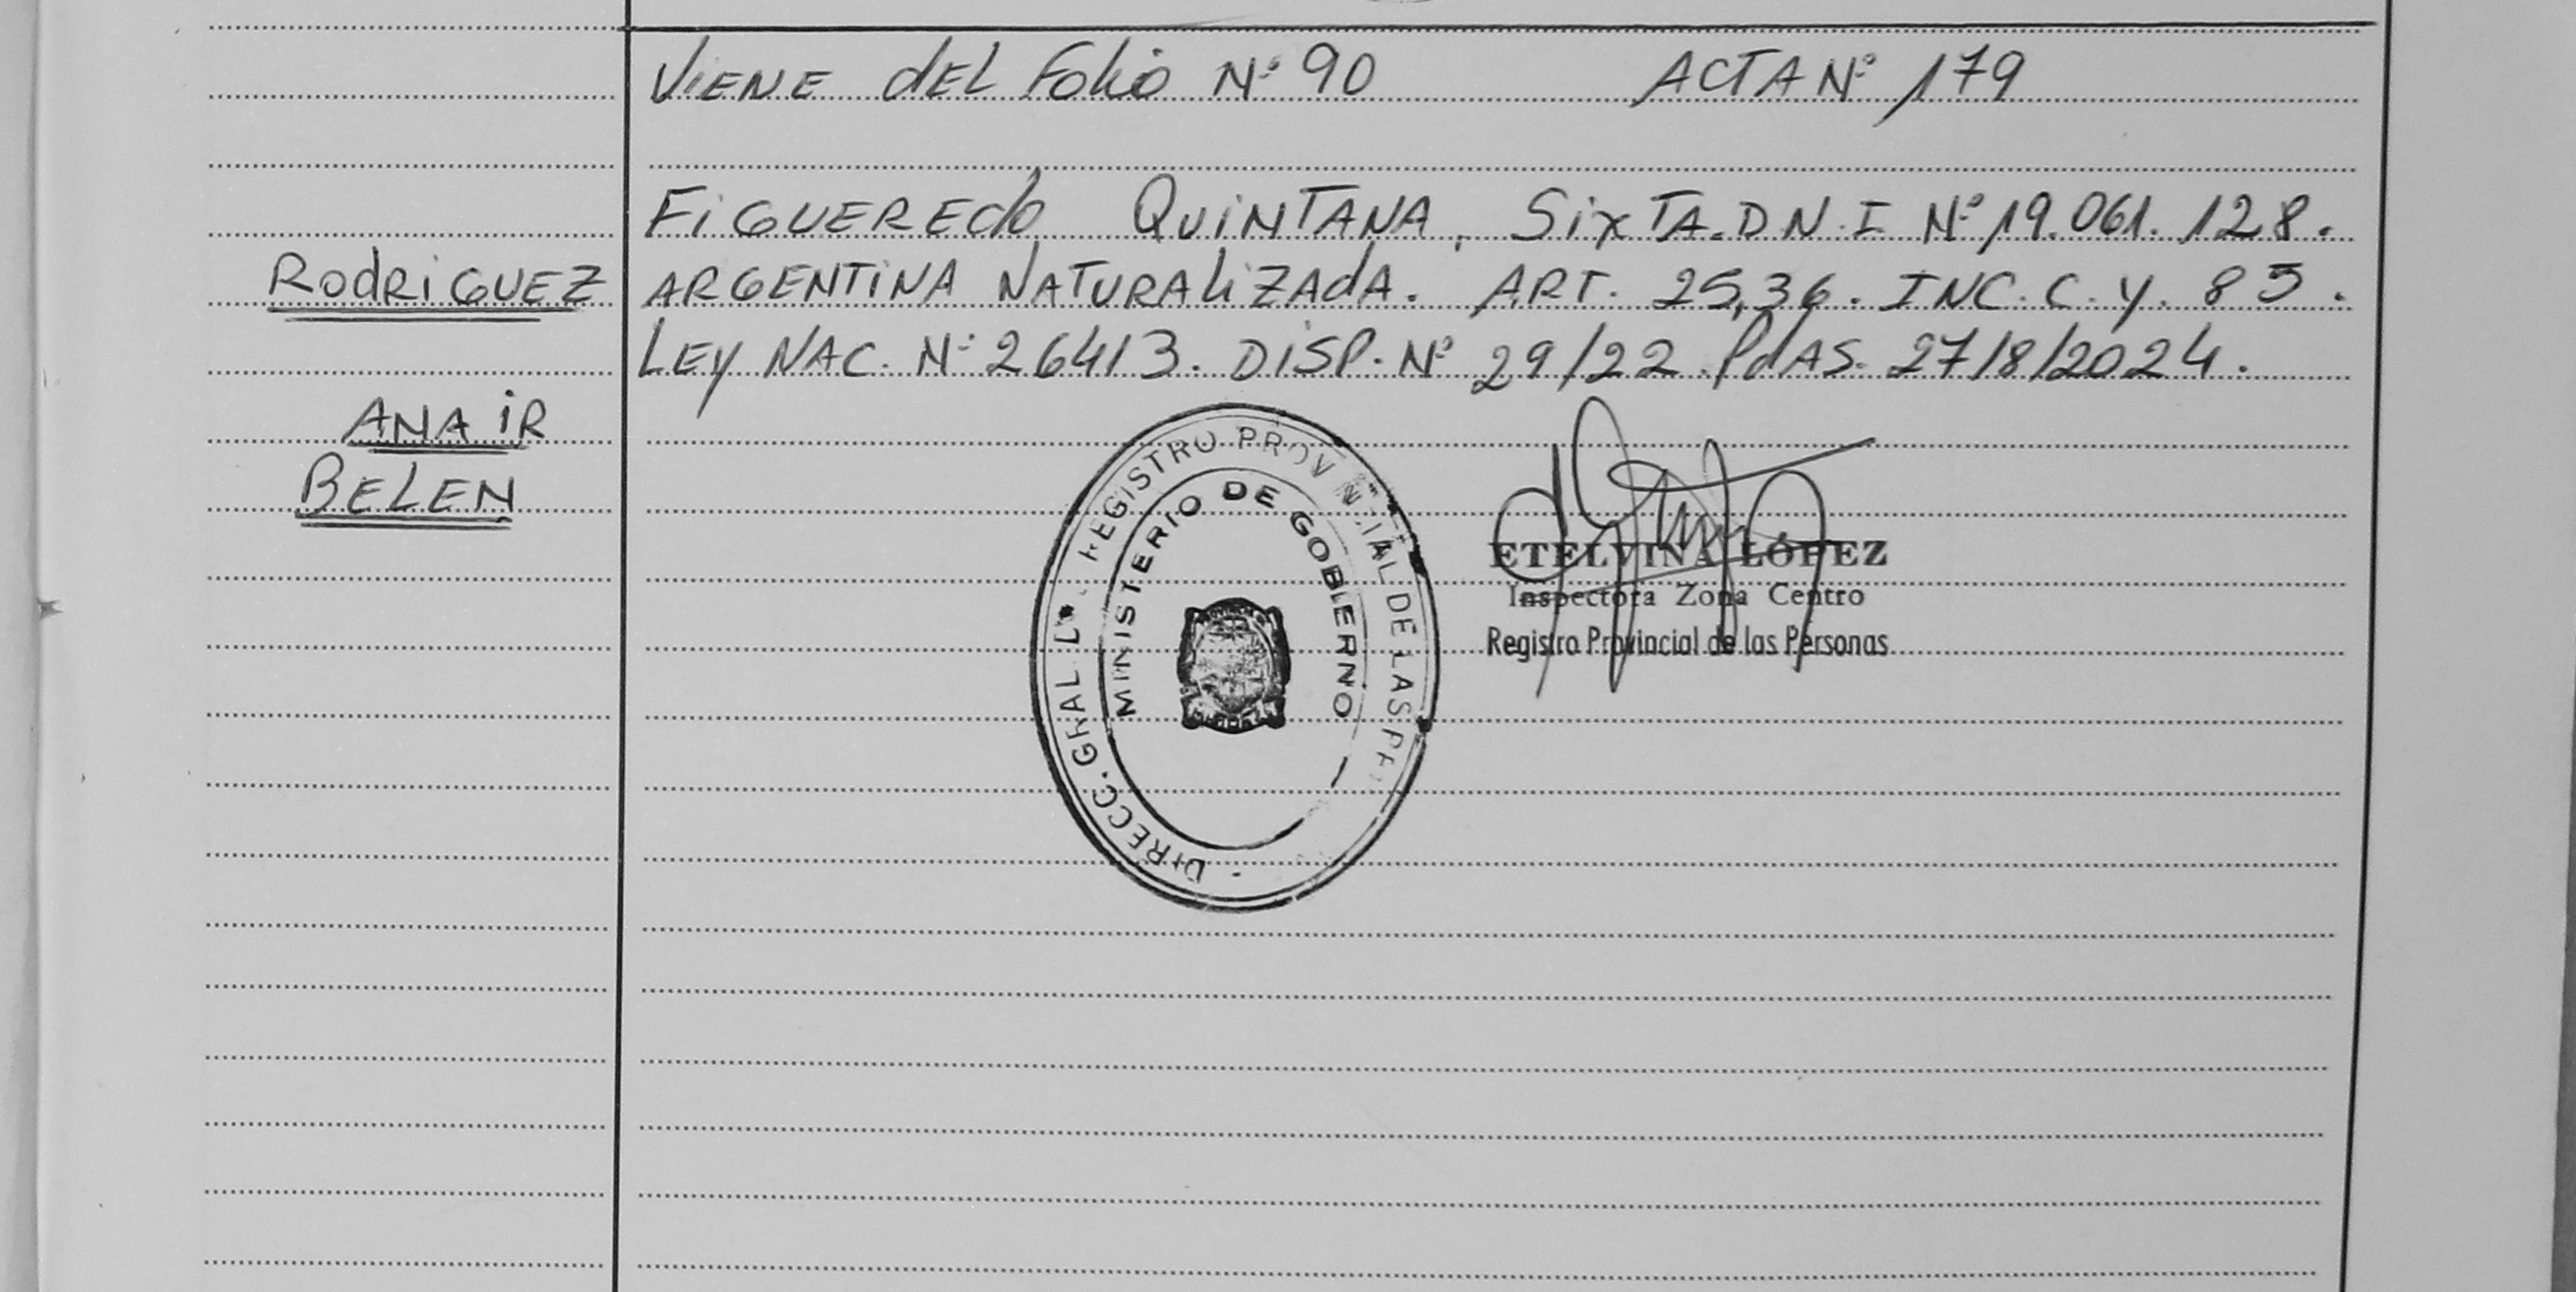 VIENE DEL Folio Nº 90 ACTA Nº 179
FIGUEREDO QUINTANA, SIXTA. D.N.I Nº 19.061.128.
RODRIGUEZ
ARGENTINA NATURALIZADA. ART. 25,36. INC. C. Y. 85.
LEY NAC. Nº 26413. DISP. Nº 29/22. PDAS. 27/8/2024.
ANAIR
BELEN
DIRECC. GRAL. REGISTRO PROVINCIAL DE LAS
MINISTERIO DE GOBIERNO
ETELVINA LÓPEZ
Inspectora Zona Centro
Registro Provincial de las Personas